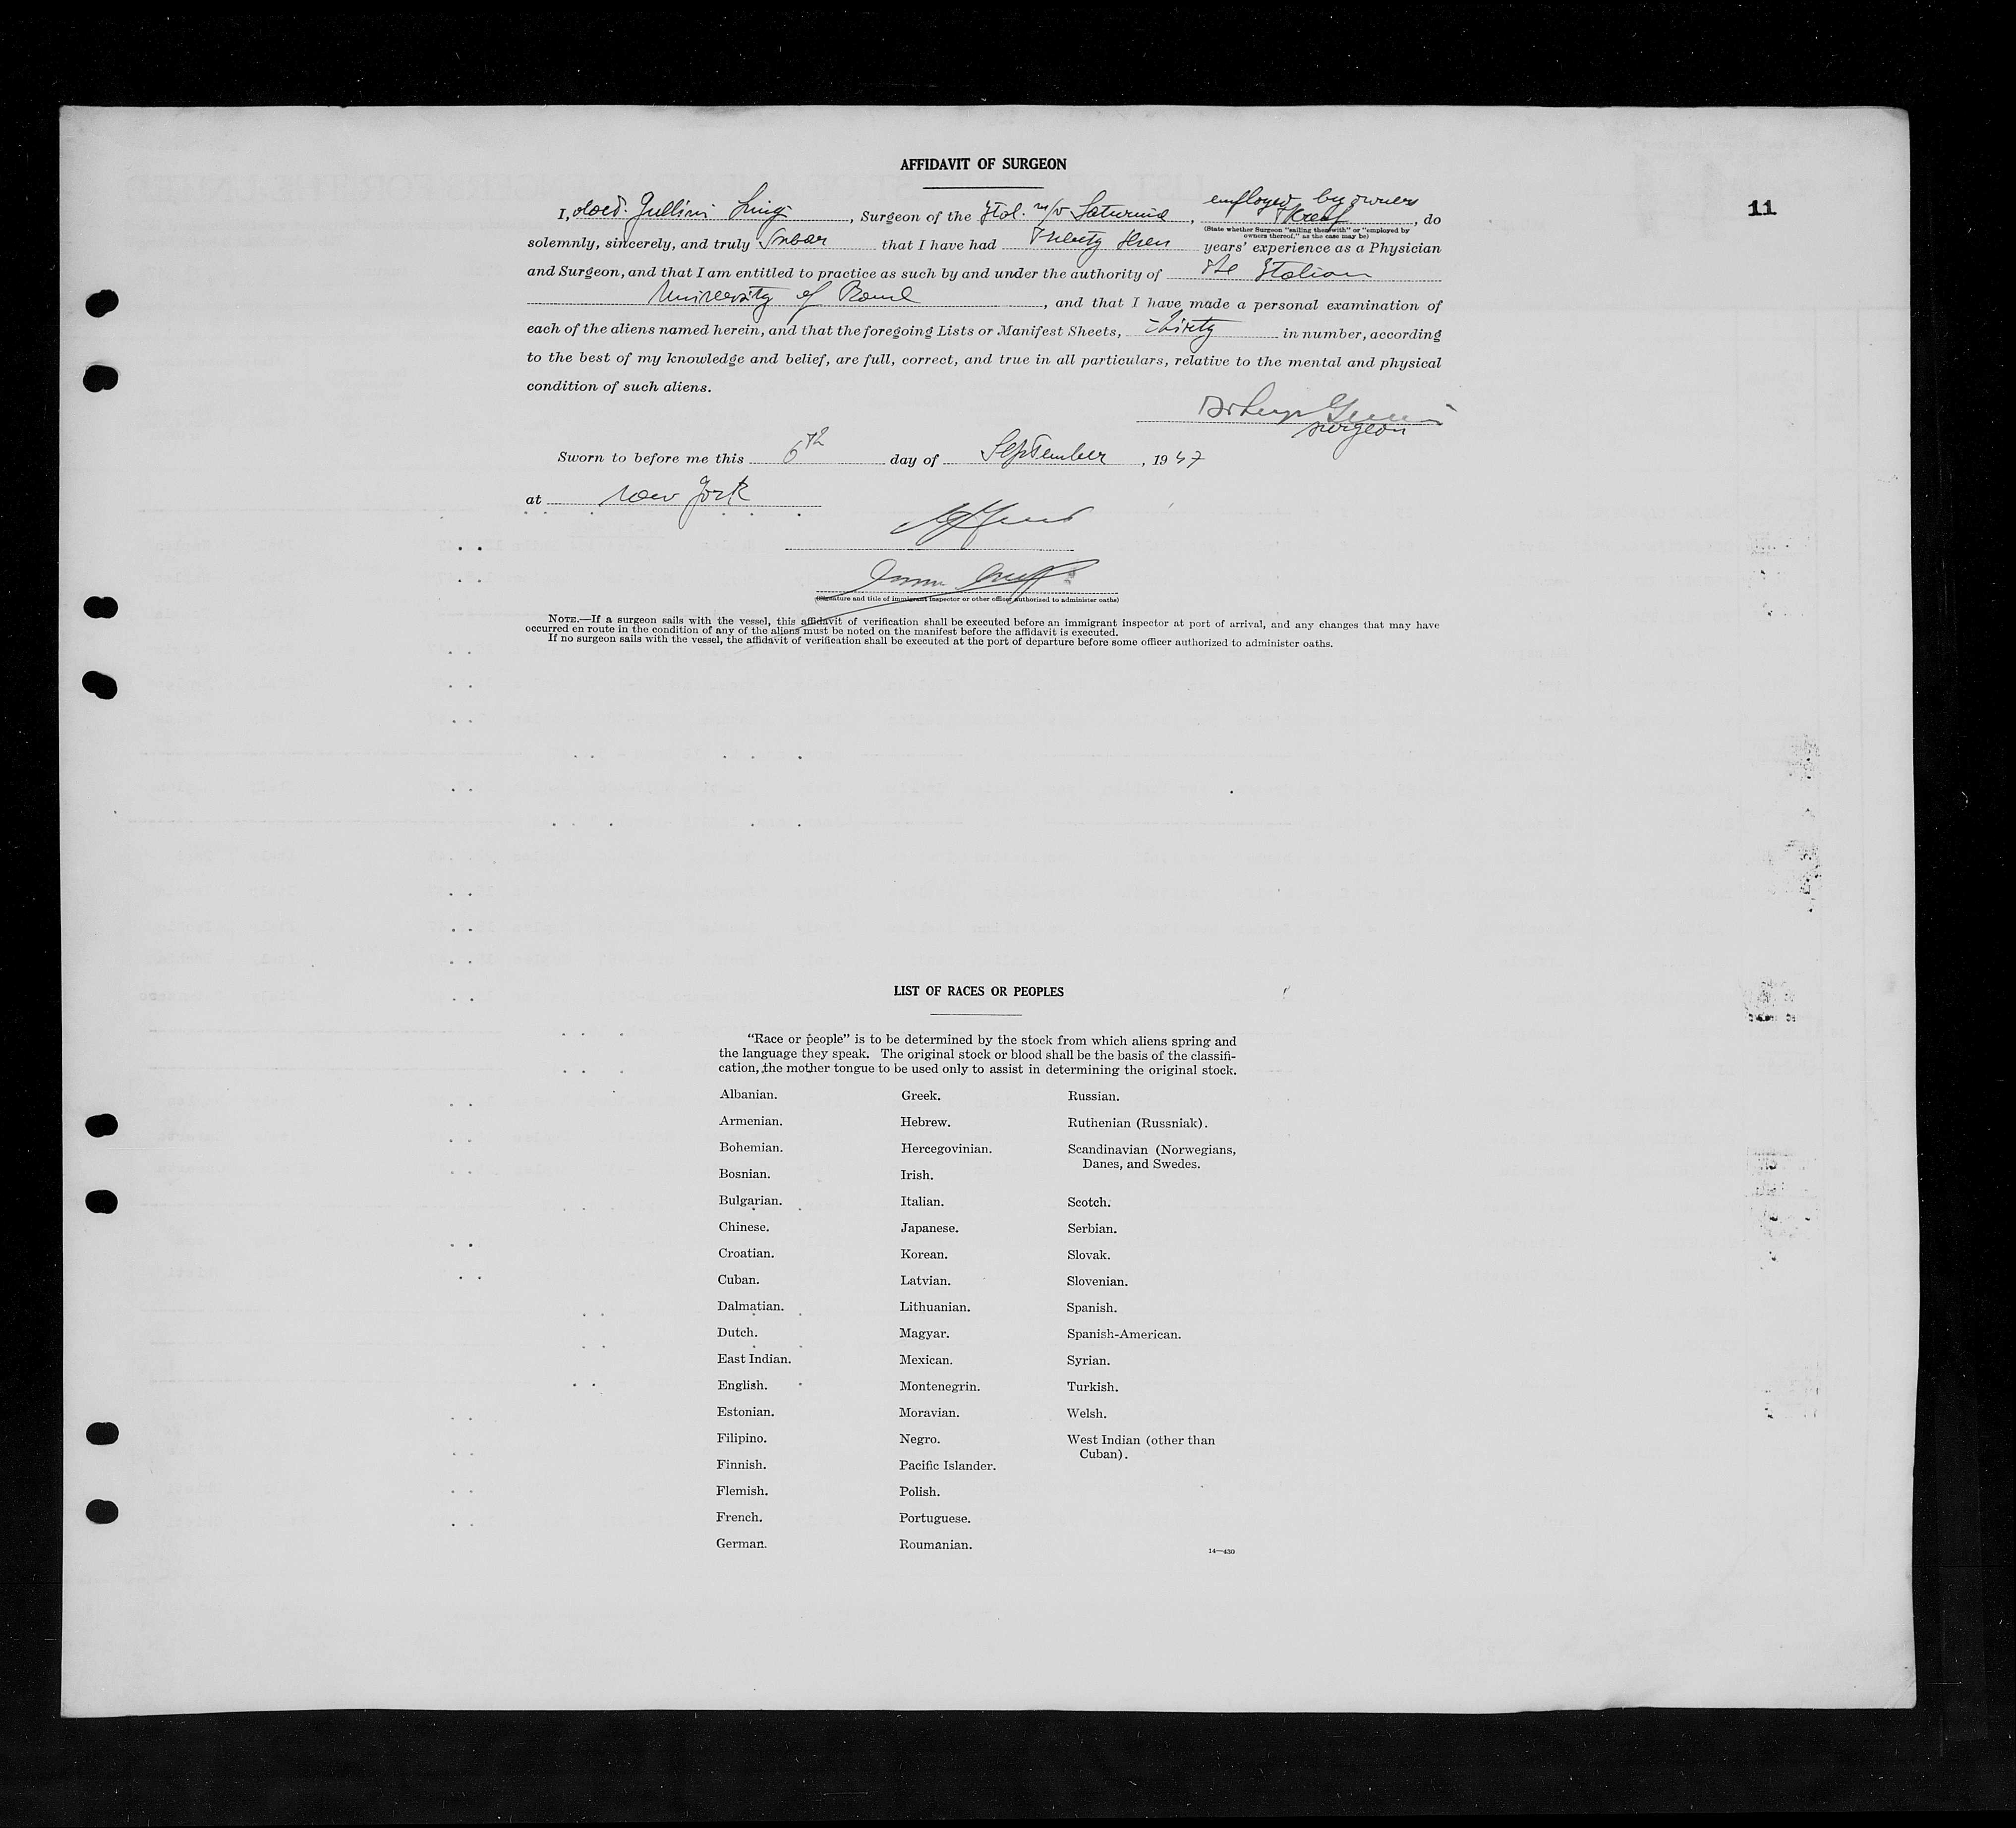 11
AFFIDAVIT OF SURGEON
I, Gullini Luigi, Surgeon of the Ital. m/v Saturnia, employed by owners thereof, do
(State whether Surgeon "sailing therewith" or "employed by
owners thereof," as the case may be)
solemnly, sincerely, and truly swear that I have had Twenty years' experience as a Physician
and Surgeon, and that I am entitled to practice as such by and under the authority of the Italian
University of Rome, and that I have made a personal examination of
each of the aliens named herein, and that the foregoing Lists or Manifest Sheets, thirty in number, according
to the best of my knowledge and belief, are full, correct, and true in all particulars, relative to the mental and physical
condition of such aliens.
Surgeon
Sworn to before me this 6th day of September, 1947
at New York
(Signature and title of immigrant inspector or other officer authorized to administer oaths)
NOTE.—If a surgeon sails with the vessel, this affidavit of verification shall be executed before an immigrant inspector at port of arrival, and any changes that may have
occurred en route in the condition of any of the aliens must be noted on the manifest before the affidavit is executed.
If no surgeon sails with the vessel, the affidavit of verification shall be executed at the port of departure before some officer authorized to administer oaths.
LIST OF RACES OR PEOPLES
"Race or people" is to be determined by the stock from which aliens spring and
the language they speak. The original stock or blood shall be the basis of the classifi-
cation, the mother tongue to be used only to assist in determining the original stock.
Albanian.
Armenian.
Bohemian.
Bosnian.
Bulgarian.
Chinese.
Croatian.
Cuban.
Dalmatian.
Dutch.
East Indian.
English.
Estonian.
Filipino.
Finnish.
Flemish.
French.
German.
Greek.
Hebrew.
Hercegovinian.
Irish.
Italian.
Japanese.
Korean.
Latvian.
Lithuanian.
Magyar.
Mexican.
Montenegrin.
Moravian.
Negro.
Pacific Islander.
Polish.
Portuguese.
Roumanian.
Russian.
Ruthenian (Russniak).
Scandinavian (Norwegians,
Danes, and Swedes.
Scotch.
Serbian.
Slovak.
Slovenian.
Spanish.
Spanish-American.
Syrian.
Turkish.
Welsh.
West Indian (other than
Cuban).
14—430